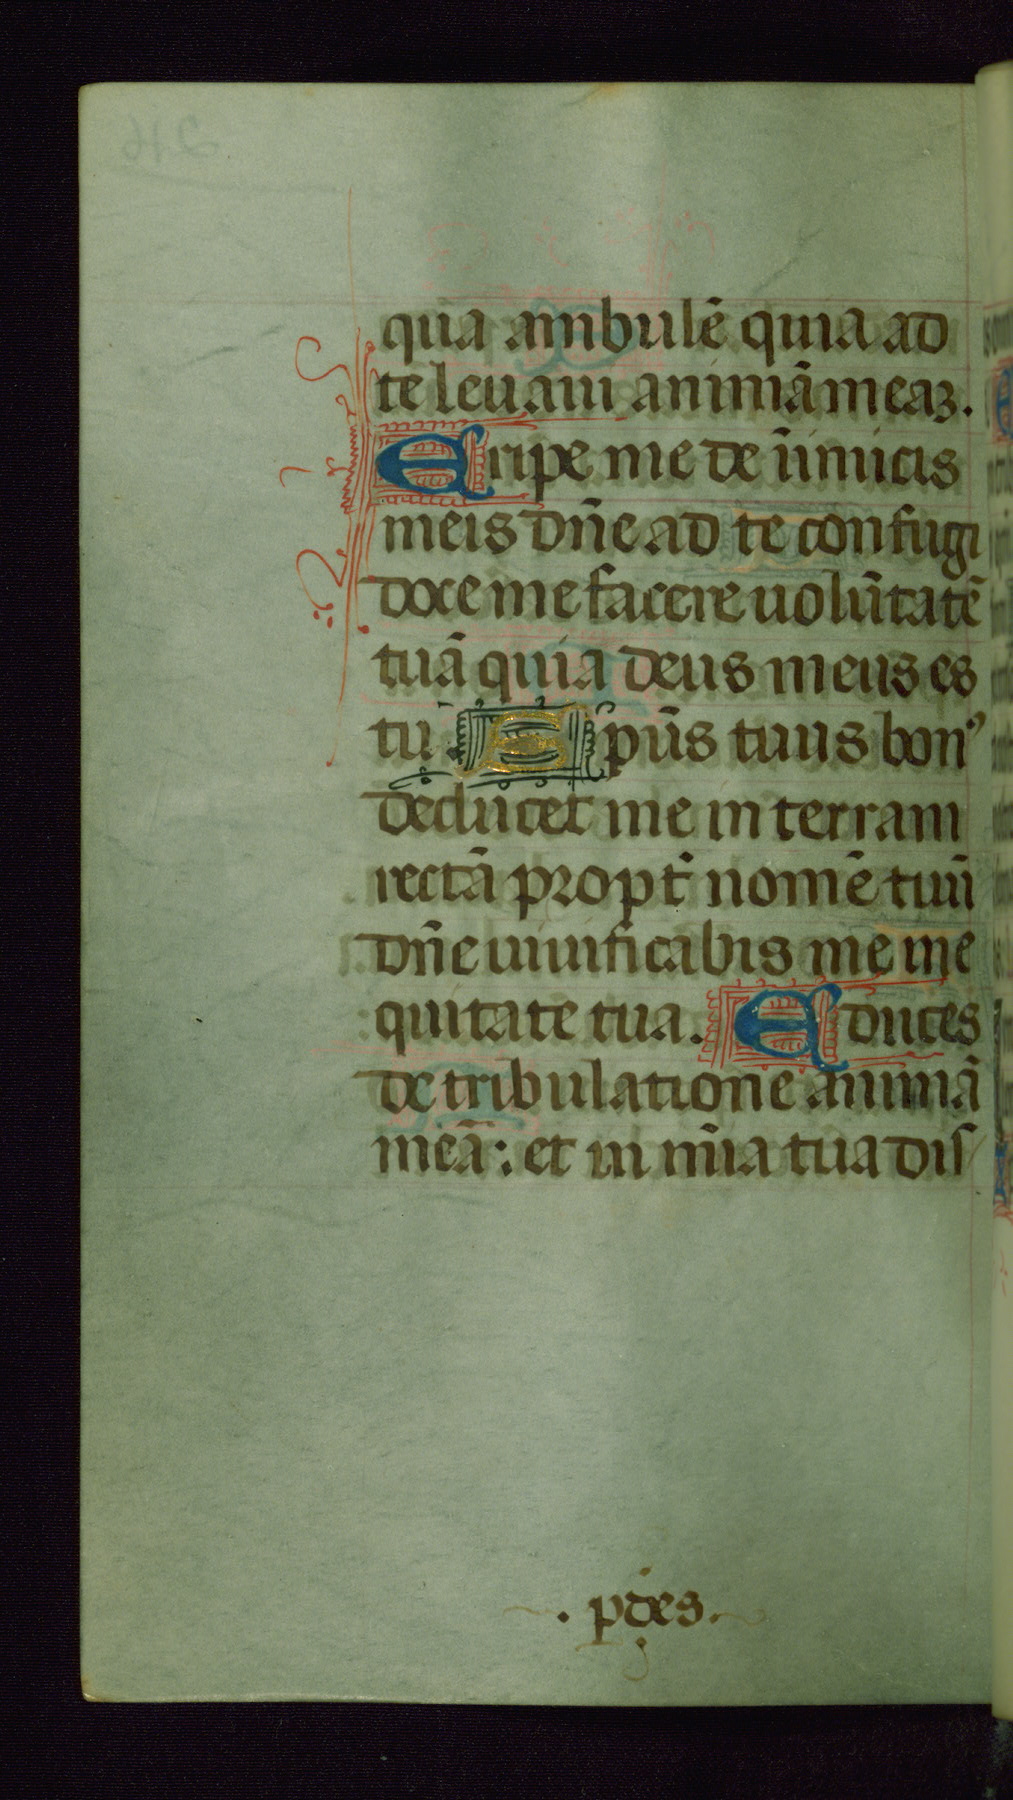 qua ambulē quia ad
te leuaui animā meaʒ.
Eripe me de īimicis
meis dn̄e ad te confugi
doce me facere uolūtatē
tuā quia deus meus es
tu Spūs tuus bonꝰ
deducet me in terram
rectā propt̄ nomē tuū
dn̄e uiuificabis me in e
quitate tua. Educes
de tribulatione animā
meā: et in mīa tua dis
. pdes.